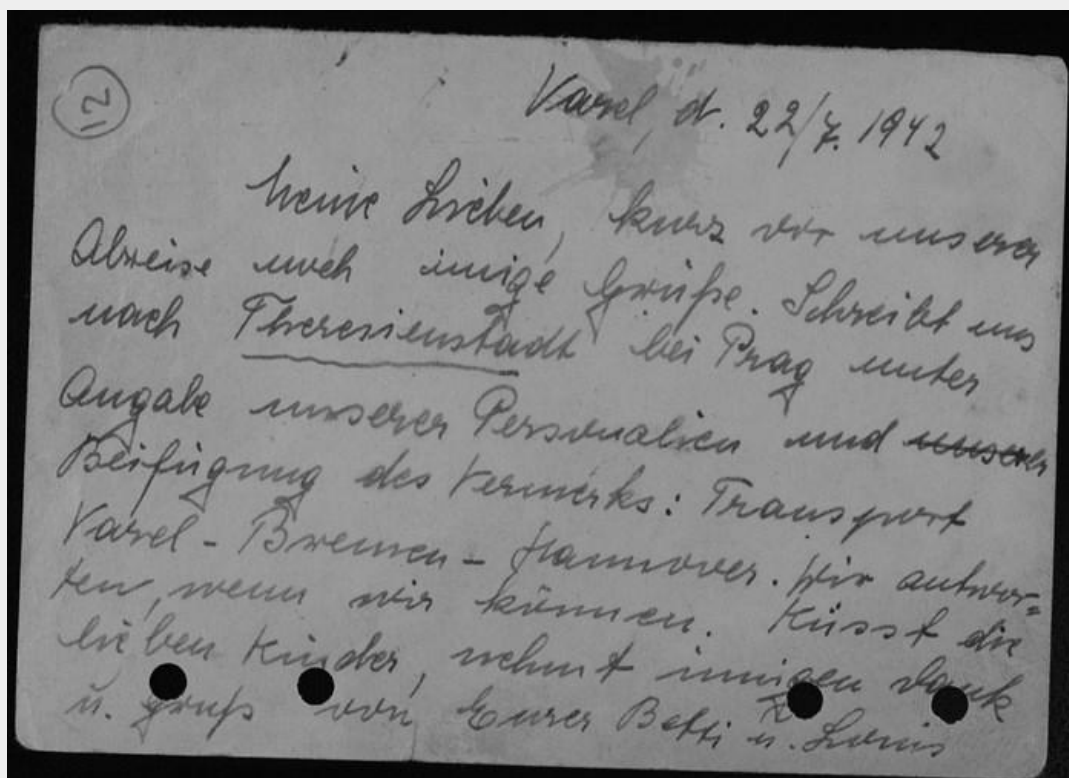 12
Varel, d. 22/7. 1942
Meine Lieben, kurz vor unserer
Abreise noch innige Grüße. Schreibt uns
nach Theresienstadt bei Prag unter
Angabe unserer Personalien und unserer
Beifügung des Vermerks: Transport
Varel - Bremen - Hannover. Wir antwor=
ten, wenn wir können. Küsst die
lieben Kinder, nehmt innigen Dank
u. Gruß von Eurer Betti u. Louis